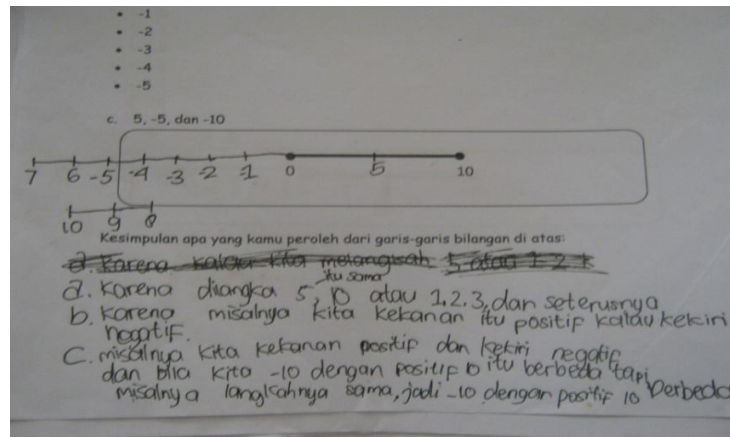 • -1
• -2
• -3
• -4
• -5
c. 5, -5, dan -10
7 6 -5 -4 -3 -2 -1 0 5 10
10 9 8
Kesimpulan apa yang kamu peroleh dari garis-garis bilangan di atas:
a. Karena kalau kita melangkah 5 atau 1 2 1
itu sama
a. Karena diangka 5, 10 atau 1.2.3, dan seterusnya
b. Karena misalnya kita kekanan itu positif kalau kekiri
negatif.
C. misalnya kita kekanan positip dan kekiri negatif
dan bila kita -10 dengan positip 10 itu berbeda tapi
misalnya langkahnya sama, jadi -10 dengan positif 10 berbeda